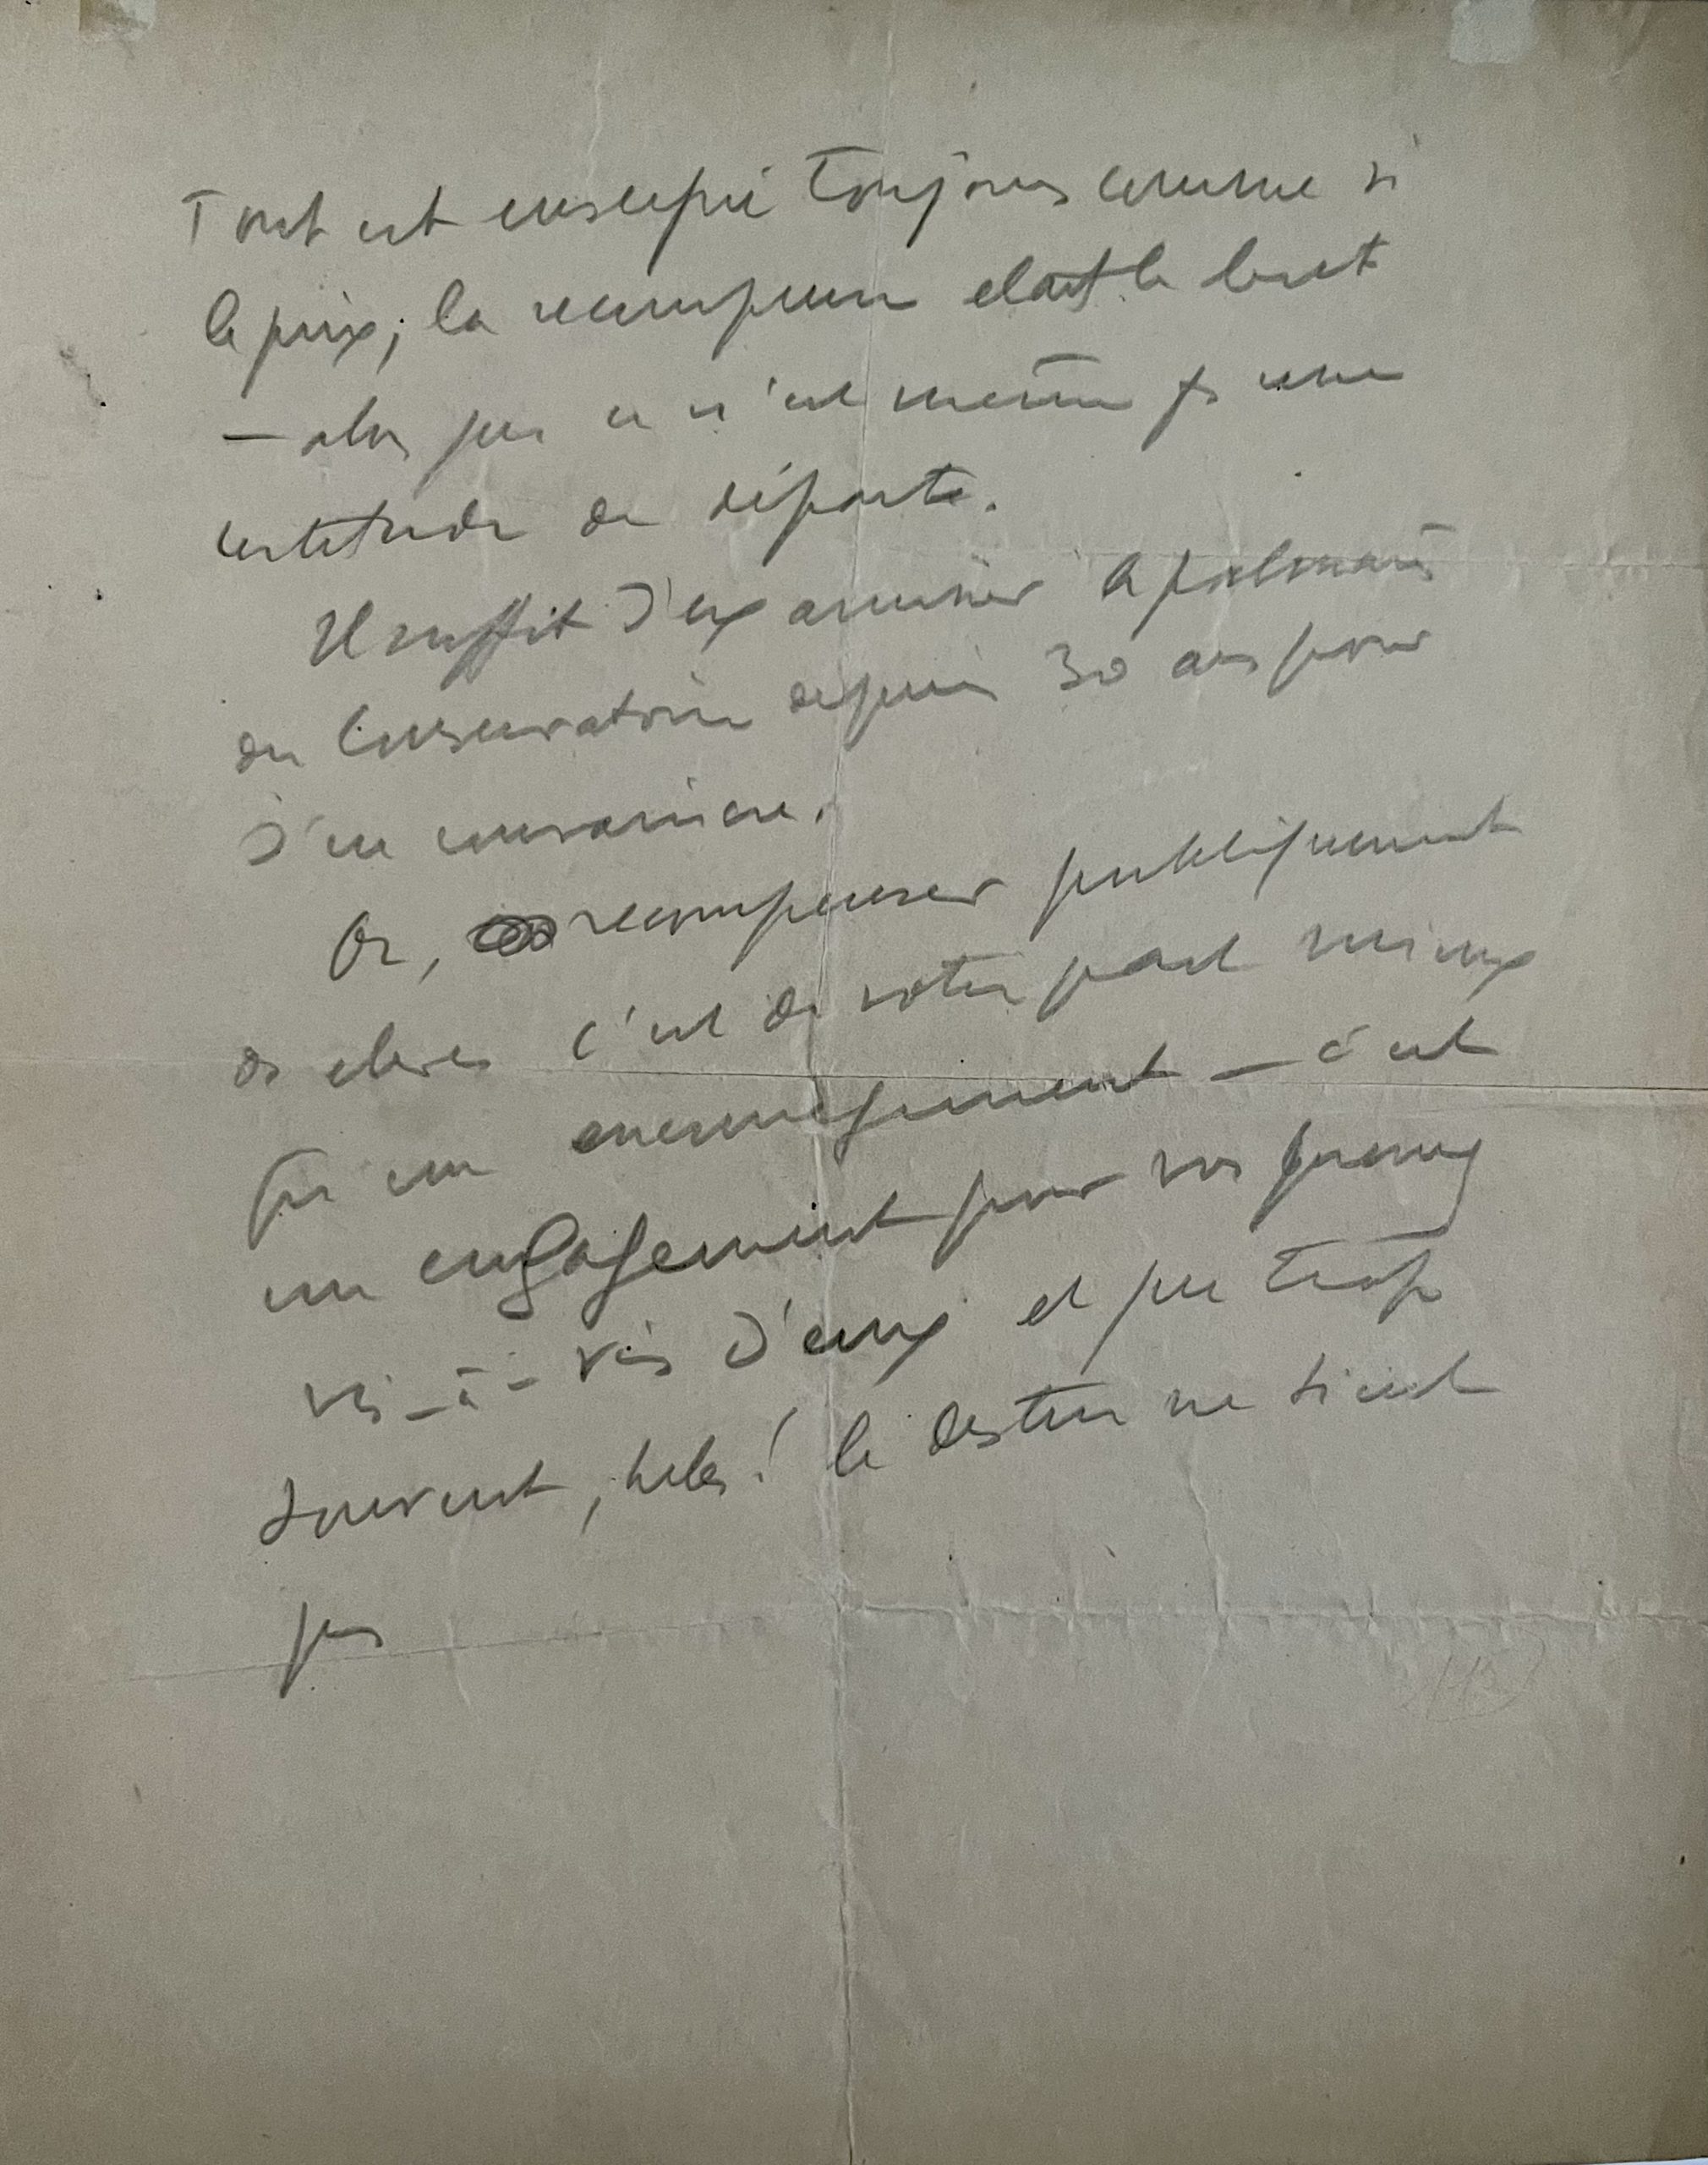 Tout est enseigné toujours comme si
le prix, la récompense était le but
— alors que ce n'est même ps une
certitude de départ.
Il suffit d'examiner le palmarès
du Conservatoire depuis 30 ans pour
s'en convaincre.
Or, récompenser publiquement
ds élèves c'est de votre part mieux
qu'un encouragement — c'est
un engagement pour vos
vis-à-vis d'eux et que trop
souvent, hélas! le destin ne tient
pas